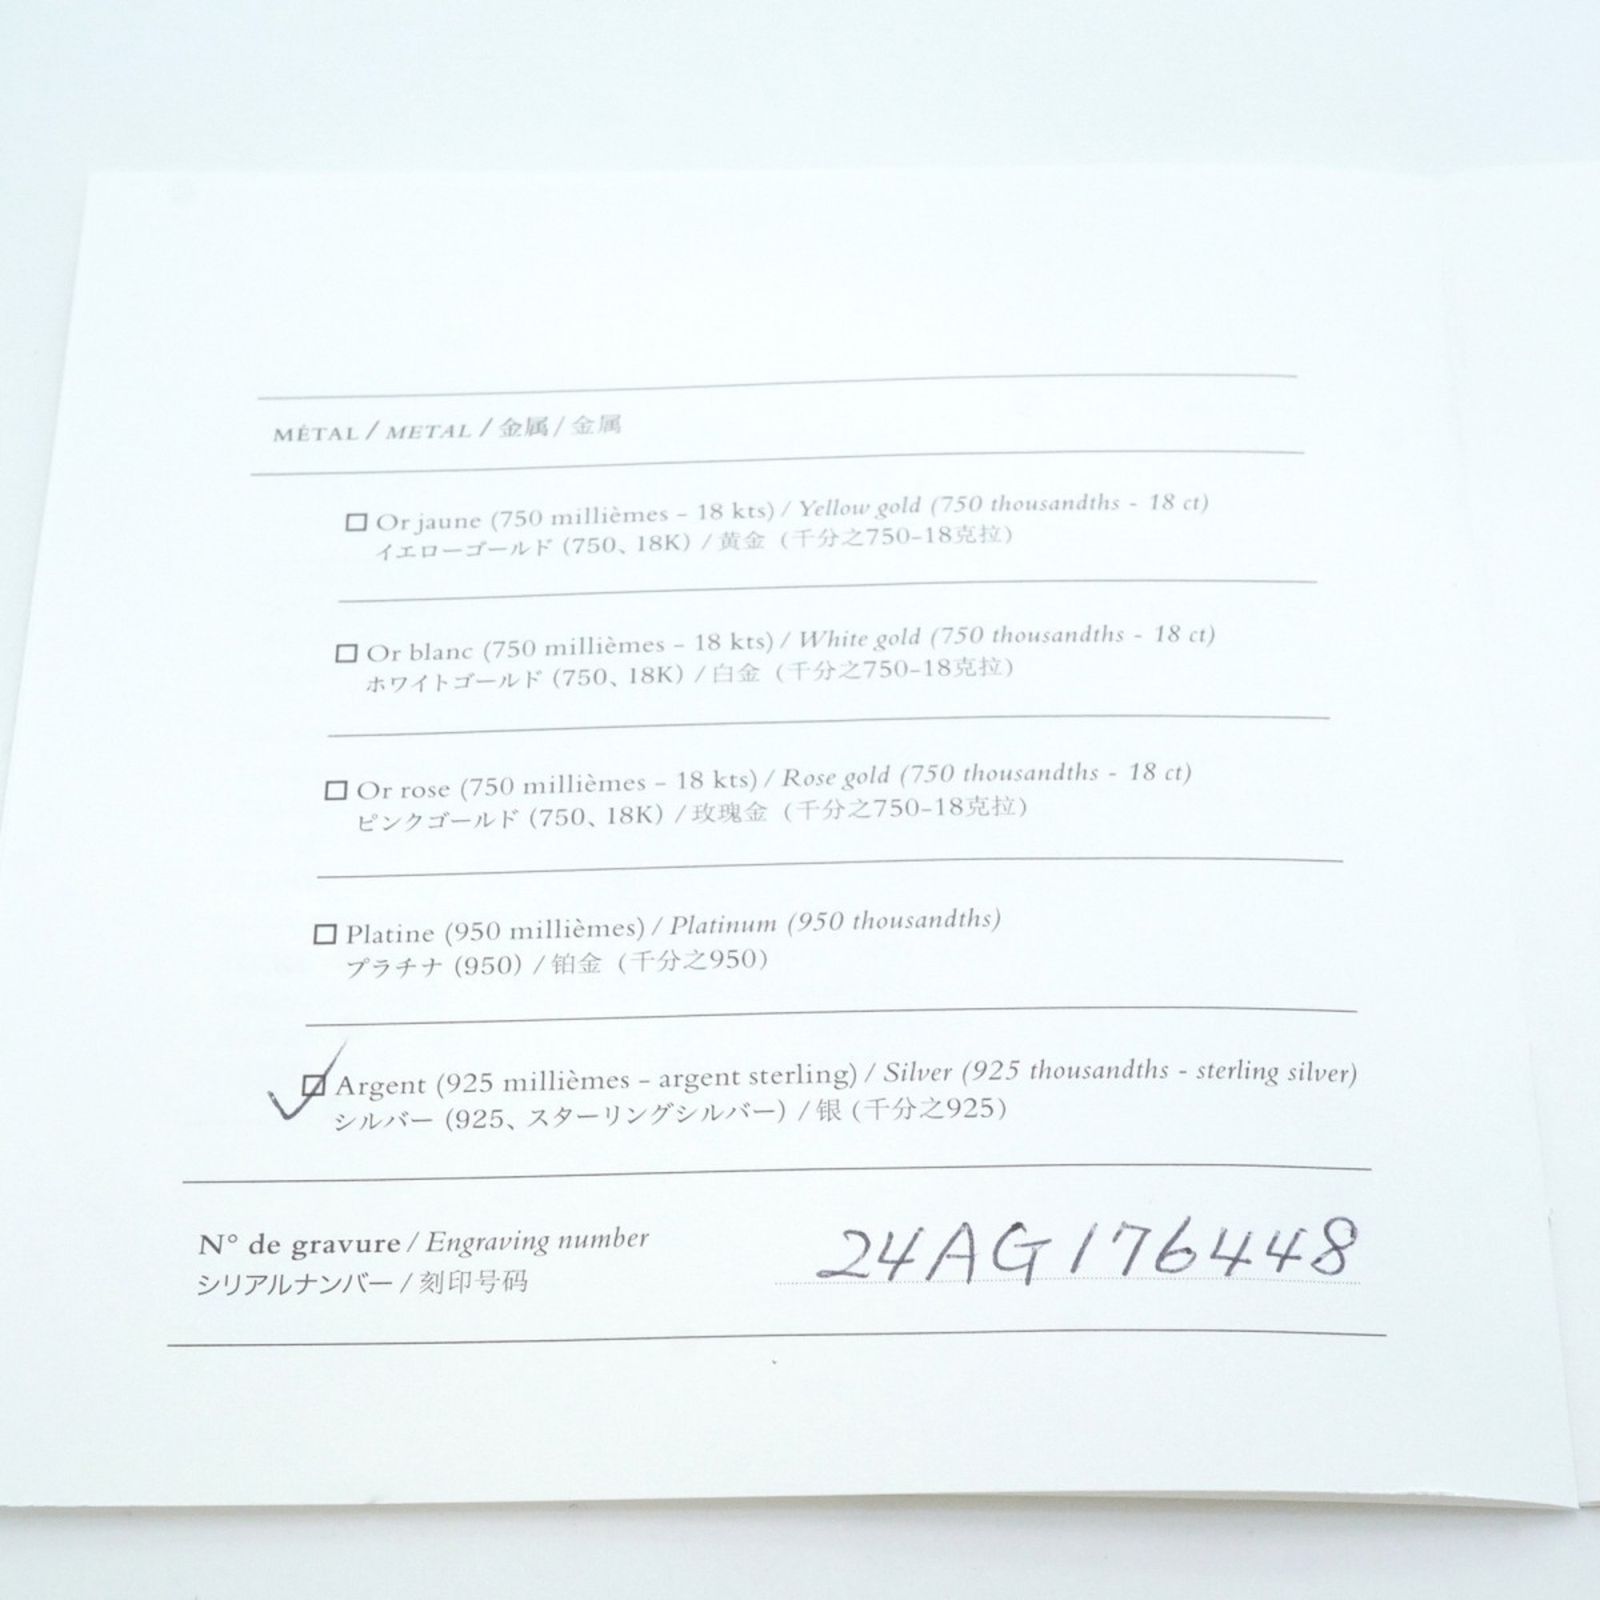 MÉTAL / METAL / 金属 / 金属
□ Or jaune (750 millièmes – 18 kts) / Yellow gold (750 thousandths - 18 ct)
イエローゴールド (750、18K) / 黄金 (千分之750-18克拉)
□ Or blanc (750 millièmes – 18 kts) / White gold (750 thousandths - 18 ct)
ホワイトゴールド (750、18K) / 白金 (千分之750-18克拉)
□ Or rose (750 millièmes – 18 kts) / Rose gold (750 thousandths - 18 ct)
ピンクゴールド (750、18K) / 玫瑰金 (千分之750-18克拉)
□ Platine (950 millièmes) / Platinum (950 thousandths)
プラチナ (950) / 铂金 (千分之950)
☑ Argent (925 millièmes – argent sterling) / Silver (925 thousandths - sterling silver)
シルバー (925、スターリングシルバー) / 银 (千分之925)
N° de gravure / Engraving number 24AG176448
シリアルナンバー / 刻印号码